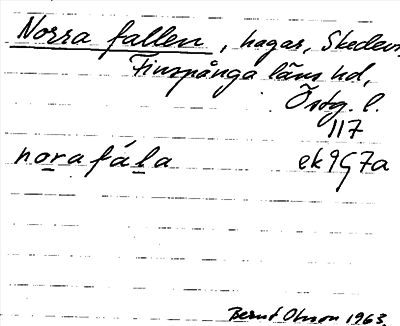 Norra fallen, hagar, Skedevi,
Finspånga läns hd,
Östg. l.
117
norafála ek9G7a
Bernt Olsson 1963.